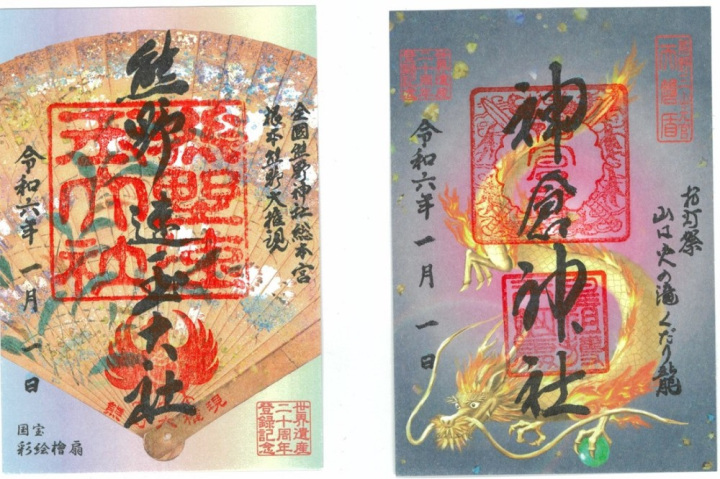 全國熊野神社総本宮
根本熊野大権現
熊野速玉大社
令和六年 一月 一日
国宝
彩絵檜扇
世界遺産
二十周年
登録記念
お灯祭
山は火の滝くだり龍
神倉神社
令和六年 一月 一日